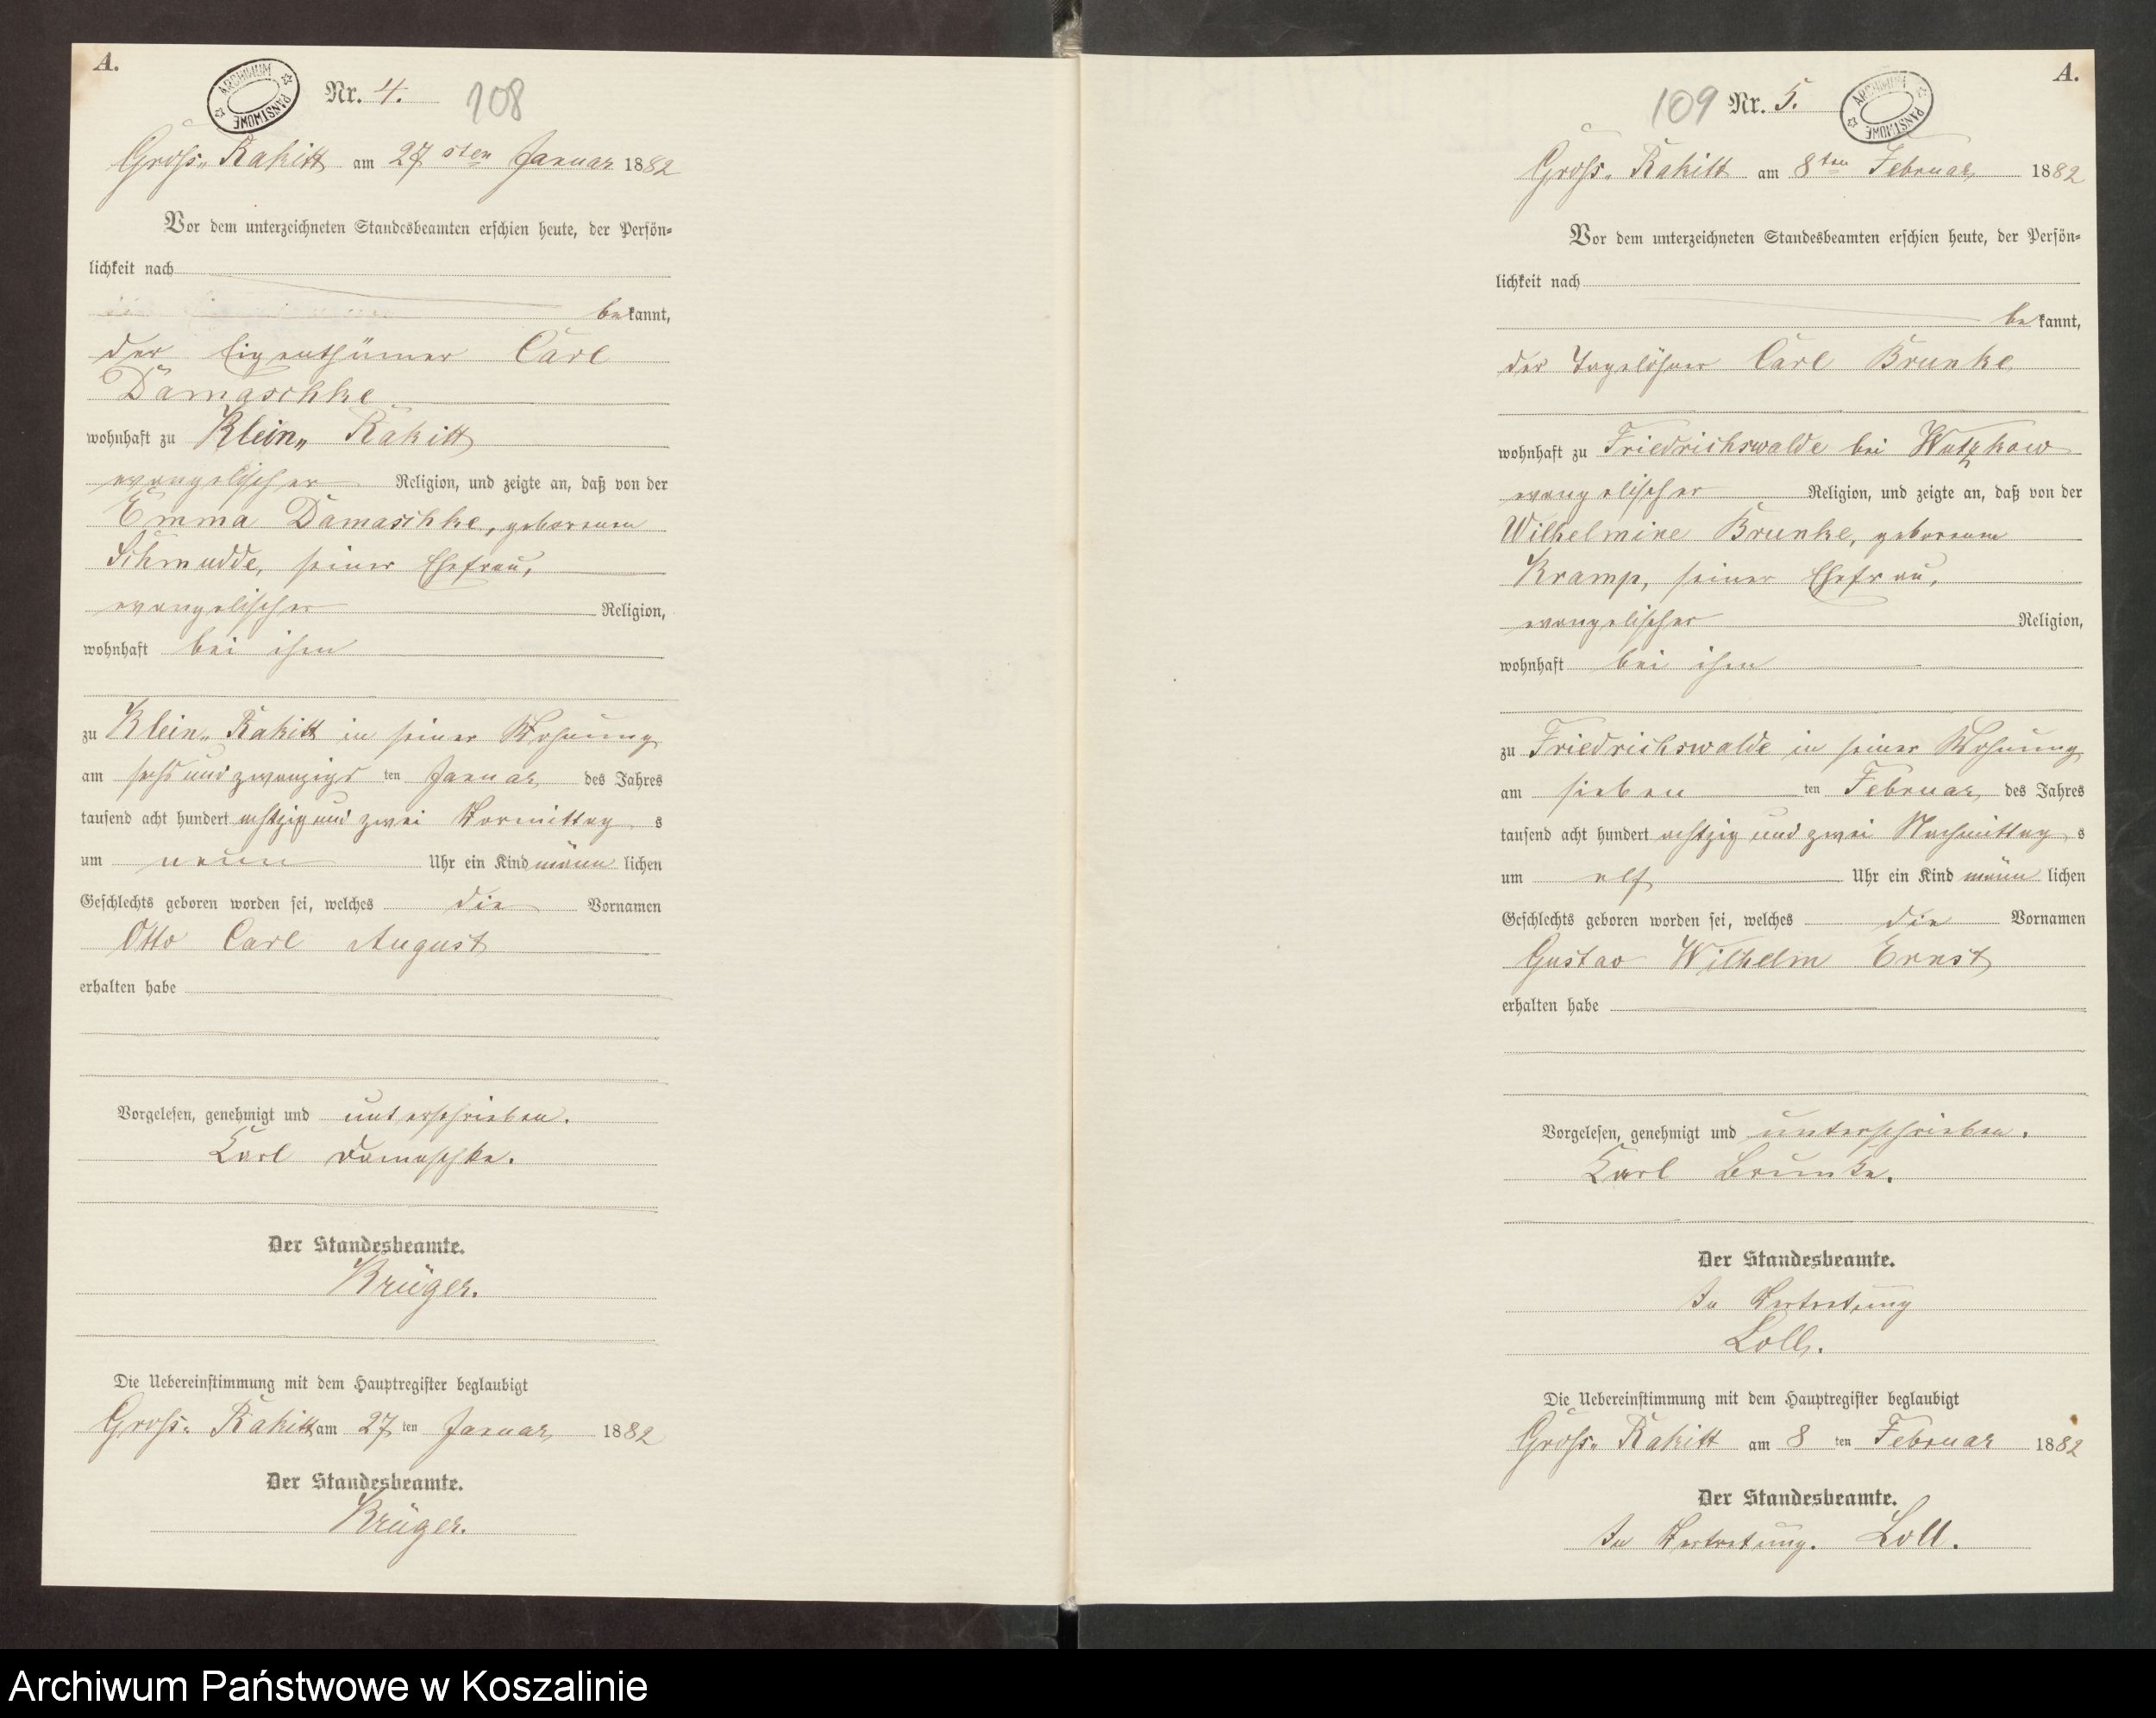 A.
ARCHIWUM PAŃSTWOWE
Nr. 4. 108
Gross„ Rakitt am 27sten Januar 1882
Vor dem unterzeichneten Standesbeamten erschien heute, der Persön=
lichkeit nach
bekannt,
der Eigenthümer Carl
Damaschke
wohnhaft zu Klein„ Rakitt
evangelischer Religion, und zeigte an, daß von der
Emma Damaschke, geborenen
Schmudde, seiner Ehefrau,
evangelischer Religion,
wohnhaft bei ihm
zu Klein„ Rakitt in seiner Wohnung
am sechs und zwanzigs ten Januar des Jahres
tausend acht hundert achtzig und zwei Vormittag s
um neun Uhr ein Kind männ lichen
Geschlechts geboren worden sei, welches die Vornamen
Otto Carl August
erhalten habe
Vorgelesen, genehmigt und unterschrieben.
Karl Damaschke.
Der Standesbeamte.
Krüger.
Die Uebereinstimmung mit dem Hauptregister beglaubigt
Gross„ Rakitt am 27 ten Januar 1882
Der Standesbeamte.
Krüger.
A.
109 Nr. 5.
ARCHIWUM PAŃSTWOWE
Gross„ Rakitt am 8ten Februar 1882
Vor dem unterzeichneten Standesbeamten erschien heute, der Persön=
lichkeit nach
bekannt,
der Tagelöhner Carl Brunke
wohnhaft zu Friedrichswalde bei Wutzkow
evangelischer Religion, und zeigte an, daß von der
Wilhelmine Brunke, geborenen
Kramp, seiner Ehefrau,
evangelischer Religion,
wohnhaft bei ihm
zu Friedrichswalde in seiner Wohnung
am sieben ten Februar des Jahres
tausend acht hundert achtzig und zwei Nachmittag s
um elf Uhr ein Kind männ lichen
Geschlechts geboren worden sei, welches die Vornamen
Gustav Wilhelm Ernst
erhalten habe
Vorgelesen, genehmigt und unterschrieben.
Karl Brunke.
Der Standesbeamte.
In Vertretung
Loll.
Die Uebereinstimmung mit dem Hauptregister beglaubigt
Gross„ Rakitt am 8 ten Februar 1882
Der Standesbeamte.
In Vertretung. Loll.
Archiwum Państwowe w Koszalinie